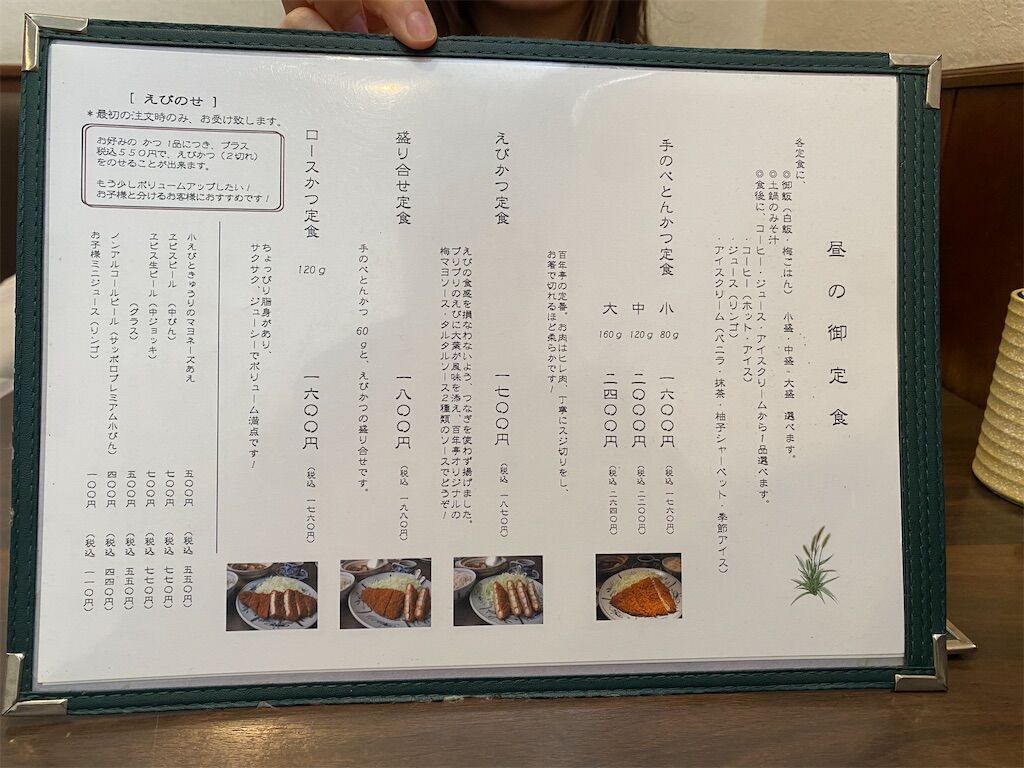 昼の御定食
各定食に、
◎御飯（白飯・梅ごはん）　小盛・中盛・大盛　選べます。
◎土鍋のみそ汁
◎食後に、コーヒー・ジュース・アイスクリームから１品選べます。
・コーヒー（ホット・アイス）
・ジュース（リンゴ）
・アイスクリーム（バニラ・抹茶・柚子シャーベット・季節アイス）
手のべとんかつ定食
小　80g　一六〇〇円　（税込　一七六〇円）
中　120g　二〇〇〇円　（税込　二二〇〇円）
大　160g　二四〇〇円　（税込　二六四〇円）
百年亭の定番。お肉はヒレ肉、丁寧にスジ切りをし、
お箸で切れるほど柔らかです！
えびかつ定食　一七〇〇円　（税込　一八七〇円）
えびの食感を損なわないよう、つなぎを使わず揚げました。
プリプリのえびに大葉が風味を添え、百年亭オリジナルの
梅マヨソース・タルタルソース２種類のソースでどうぞ！
盛り合せ定食　一八〇〇円　（税込　一九八〇円）
手のべとんかつ　60gと、えびかつの盛り合せです。
ロースかつ定食　120g　一六〇〇円　（税込　一七六〇円）
ちょっぴり脂身があり、
サクサク、ジューシーでボリューム満点です！
［ えびのせ ］
＊最初の注文時のみ、お受け致します。
お好みの かつ １品につき、プラス
税込５５０円で、えびかつ（２切れ）
をのせることが出来ます。
もう少しボリュームアップしたい！
お子様と分けるお客様におすすめです！
小えびときゅうりのマヨネーズあえ　五〇〇円　（税込　五五〇円）
ヱビスビール　（中びん）　七〇〇円　（税込　七七〇円）
ヱビス生ビール（中ジョッキ）　七〇〇円　（税込　七七〇円）
（グラス）　五〇〇円　（税込　五五〇円）
ノンアルコールビール（サッポロプレミアム小びん）　四〇〇円　（税込　四四〇円）
お子様ミニジュース（リンゴ）　一〇〇円　（税込　一一〇円）